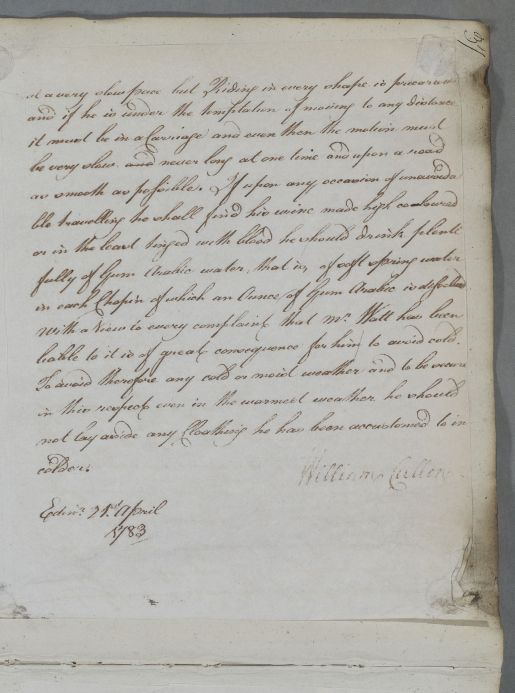 at a very slow pace but Riding in every shape is precarious
and if he is under the temptation of moving to any distance
it must be in a Carriage and even then the motion must
be very slow and never long at one time and upon a road
as smooth as possible. If upon any occasion of unavoida
ble travelling he shall find his urine made high coloured
or in the least tinged with blood he should drink plenti
fully of Gum Arabic water, that is, of soft spring water
in each Chopin of which an Ounce of Gum Arabic is dissolved
With a view to every complaint that Mr. Watt has been
liable to it is of great consequence for him to avoid cold.
To avoid therefore any cold or moist weather and to be secure
in this respect even in the warmest weather he should
not lay aside any Cloathing he has been accustomed to in
colder.
William Cullen
Edinr. 21st April
1783